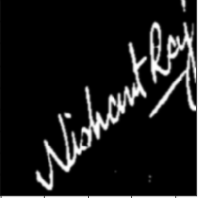 Nishant Roy